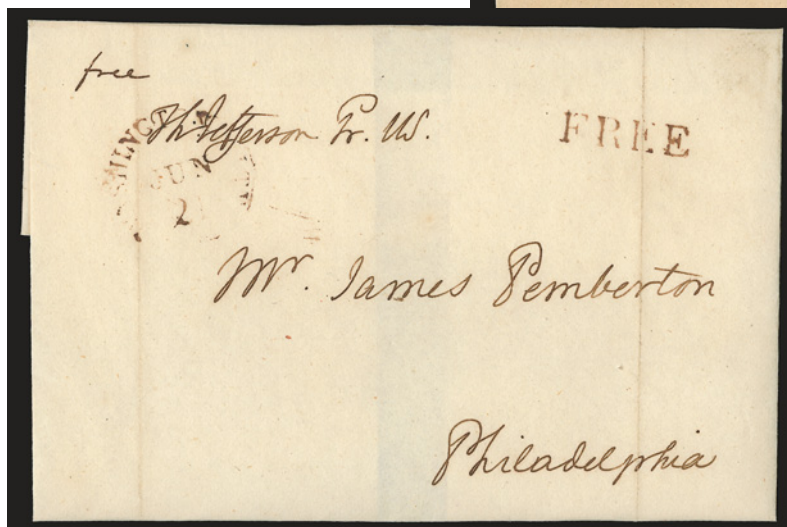 free
Th Jefferson Pr. US.
FREE
JUN
Mr. James Pemberton
Philadelphia